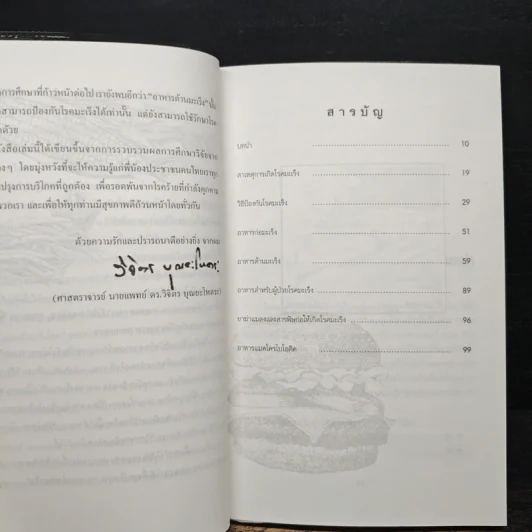 การศึกษาที่ก้าวหน้าต่อไป เรายังพบอีกว่า "อาหารต้านมะเร็ง" นั้น
สามารถป้องกันโรคมะเร็งได้เท่านั้น แต่ยังสามารถใช้รักษาโรค
ด้วย
สือเล่มนี้ได้เขียนขึ้นจากการรวบรวมผลการศึกษาวิจัยจาก
างๆ โดยมุ่งหวังที่จะให้ความรู้แก่พี่น้องประชาชนคนไทยเรา
ปรุงการบริโภคที่ถูกต้อง เพื่อรอดพ้นจากโรคร้ายที่กำลังคุกคาม
วยเรา และเพื่อให้ทุกท่านมีสุขภาพดีถ้วนหน้าโดยทั่วกัน
ด้วยความรักและปรารถนาดีอย่างยิ่ง จากผม
วิจิตร บุณยะโหตระ
(ศาสตราจารย์ นายแพทย์ ดร.วิจิตร บุณยะโหตระ)
สารบัญ
บทนำ 10
สาเหตุการเกิดโรคมะเร็ง 19
วิธีป้องกันโรคมะเร็ง 29
อาหารก่อมะเร็ง 51
อาหารต้านมะเร็ง 59
อาหารสำหรับผู้ป่วยโรคมะเร็ง 89
ยาฆ่าแมลงและสารพิษก่อให้เกิดโรคมะเร็ง 96
อาหารแมคโครไบโอติค 99